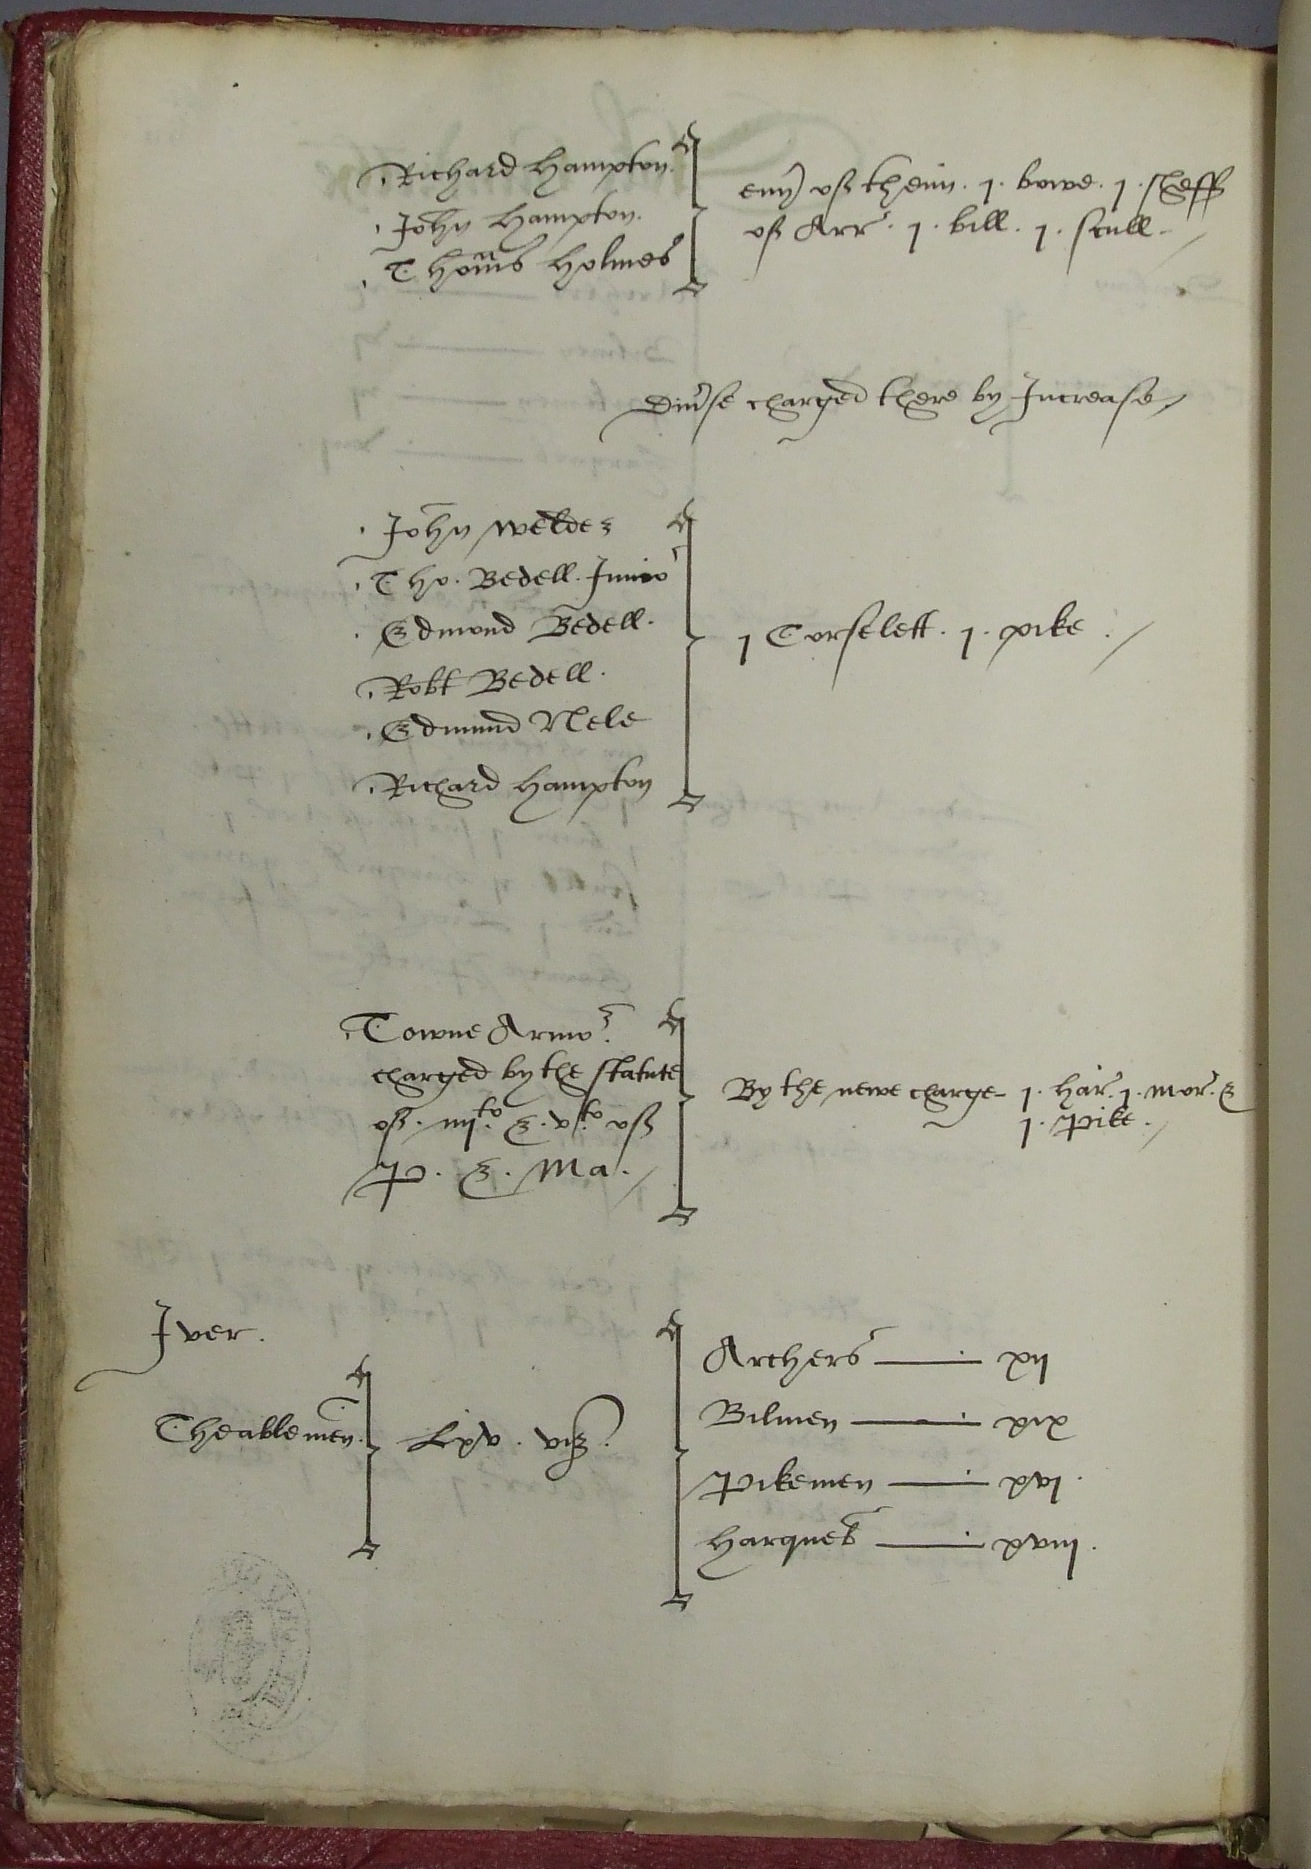 Richard Hampton
John Hampton.
Thoms Holmes
eūy of theim . j . bowe . j . sheff
of Arr . j . bill . j . scull .
Div'se charged there by Increase
John Weldes
Tho . Bedell . Junio'
Edmond Bedell .
Robt Bedell .
Edmund Nele
Richard Hampton
j Corselett . j . pike .
Towne Armo'.
charged by the statute
of . iiijto . & . vto . of
P . & . Ma .
By the newe charge - j . Har' . j . mor' . &
j . Pike .
Iver .
The able men .
Lxv . viz .
Archers —— xij
Bilmen —— xix
Pikemen —— xvj .
Harqueb —— xviij .